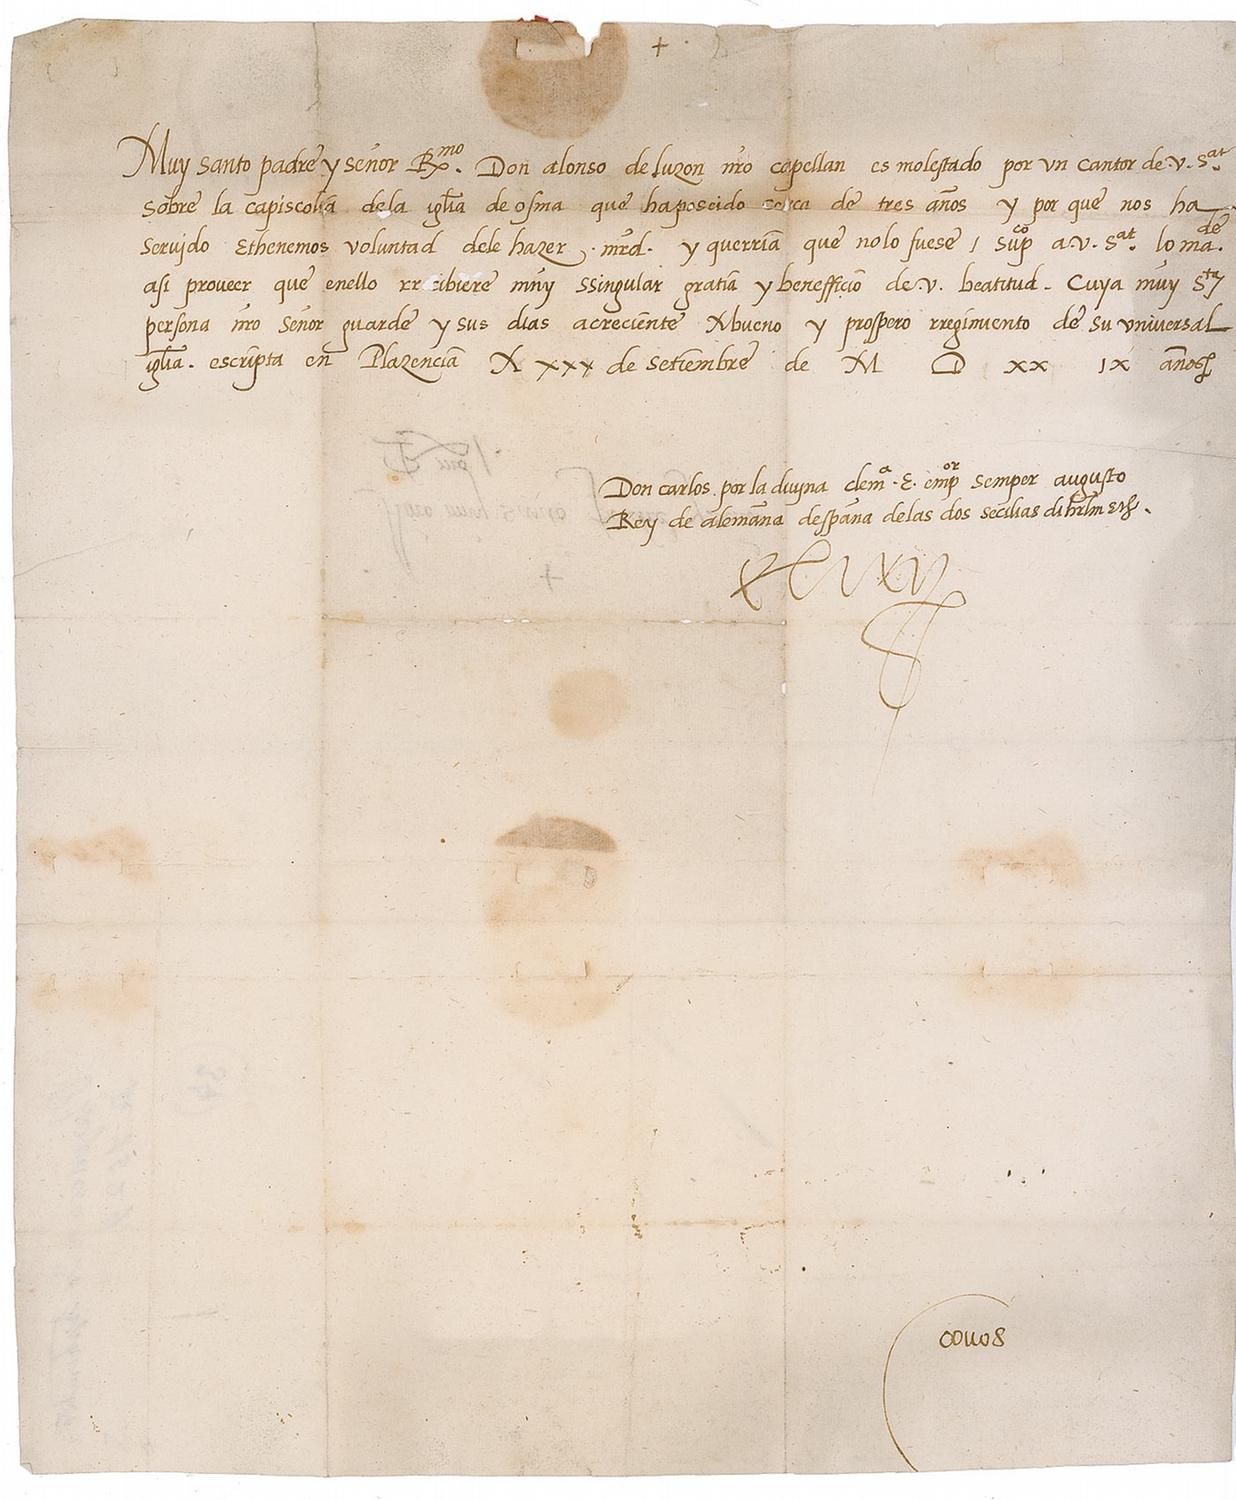 +
Muy santo padre y señor Rmo. Don alonso de luzon nro capellan es molestado por vn cantor de .v. Sat.
sobre la capiscolia dela iglia de osma que ha poseido cerca de tres años y por que nos ha
seruido Ethenemos voluntad dele hazer .mrd. y querria que nolo fuese / supco a.v. Sat. lo mande.
asi proueer que enello rrecibiere muy ssingular gratia y benefficio de .v. beatitud. Cuya muy Sta
persona nro señor guarde y sus dias acreciente Abueno y prospero rregimiento de su vniversal
iglia. escripta en Plazencia A xxx de setiembre de M D xx ix años
Don carlos por la diuyna clema .E. empor semper augusto
Rey de alemana despana delas dos secilias di hrlm
couos